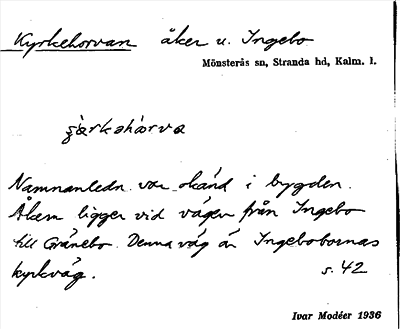 Kyrkehorvan åker u. Ingebo
Mönsterås sn, Stranda hd, Kalm. l.
Namnanledn. var okänd i bygden.
Åkern ligger vid vägen från Ingebo
till Gränebo. Denna väg är Ingebobornas
kyrkväg. s. 42
Ivar Modéer 1936